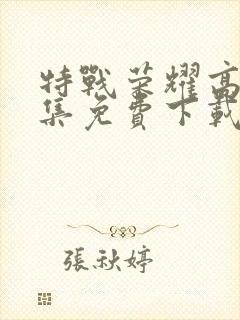 特戰荣耀高
集免費下載
張秋婷